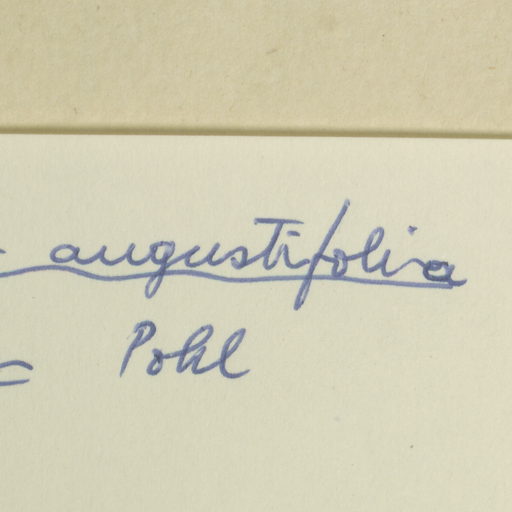 angustifolia
Pohl